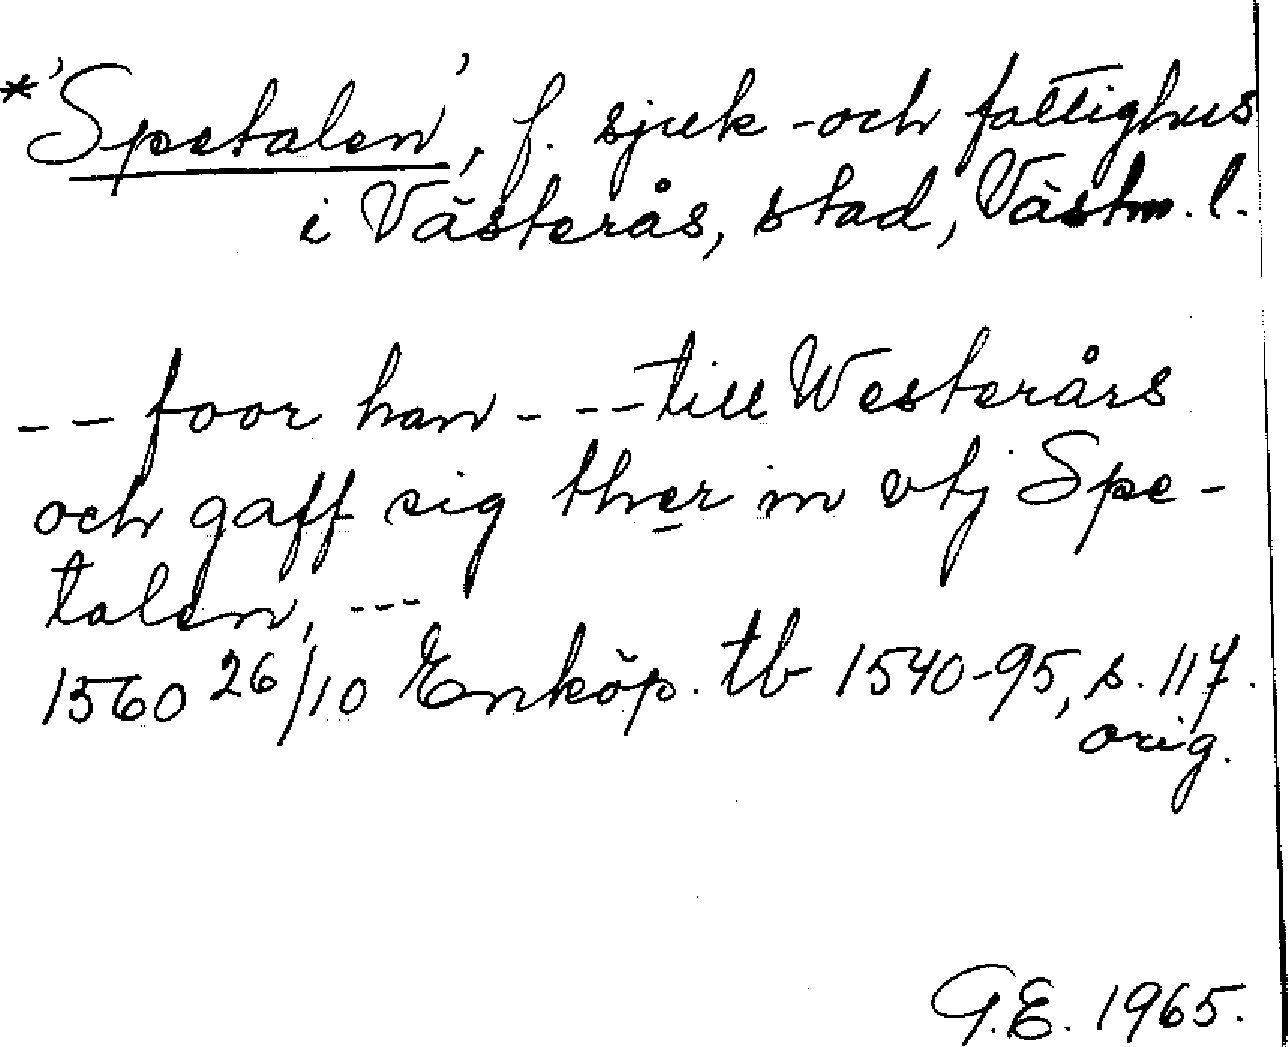 *'Spetalen', f. sjuk-och fattighus
i Västerås, stad, Västm. l.
-- foor han - --- till Westerårs
och gaff sig ther in vtj Spe-
talen, ---
1560 26/10 Enköp. tb 1540-95, s. 117.
orig.
G.E. 1965.